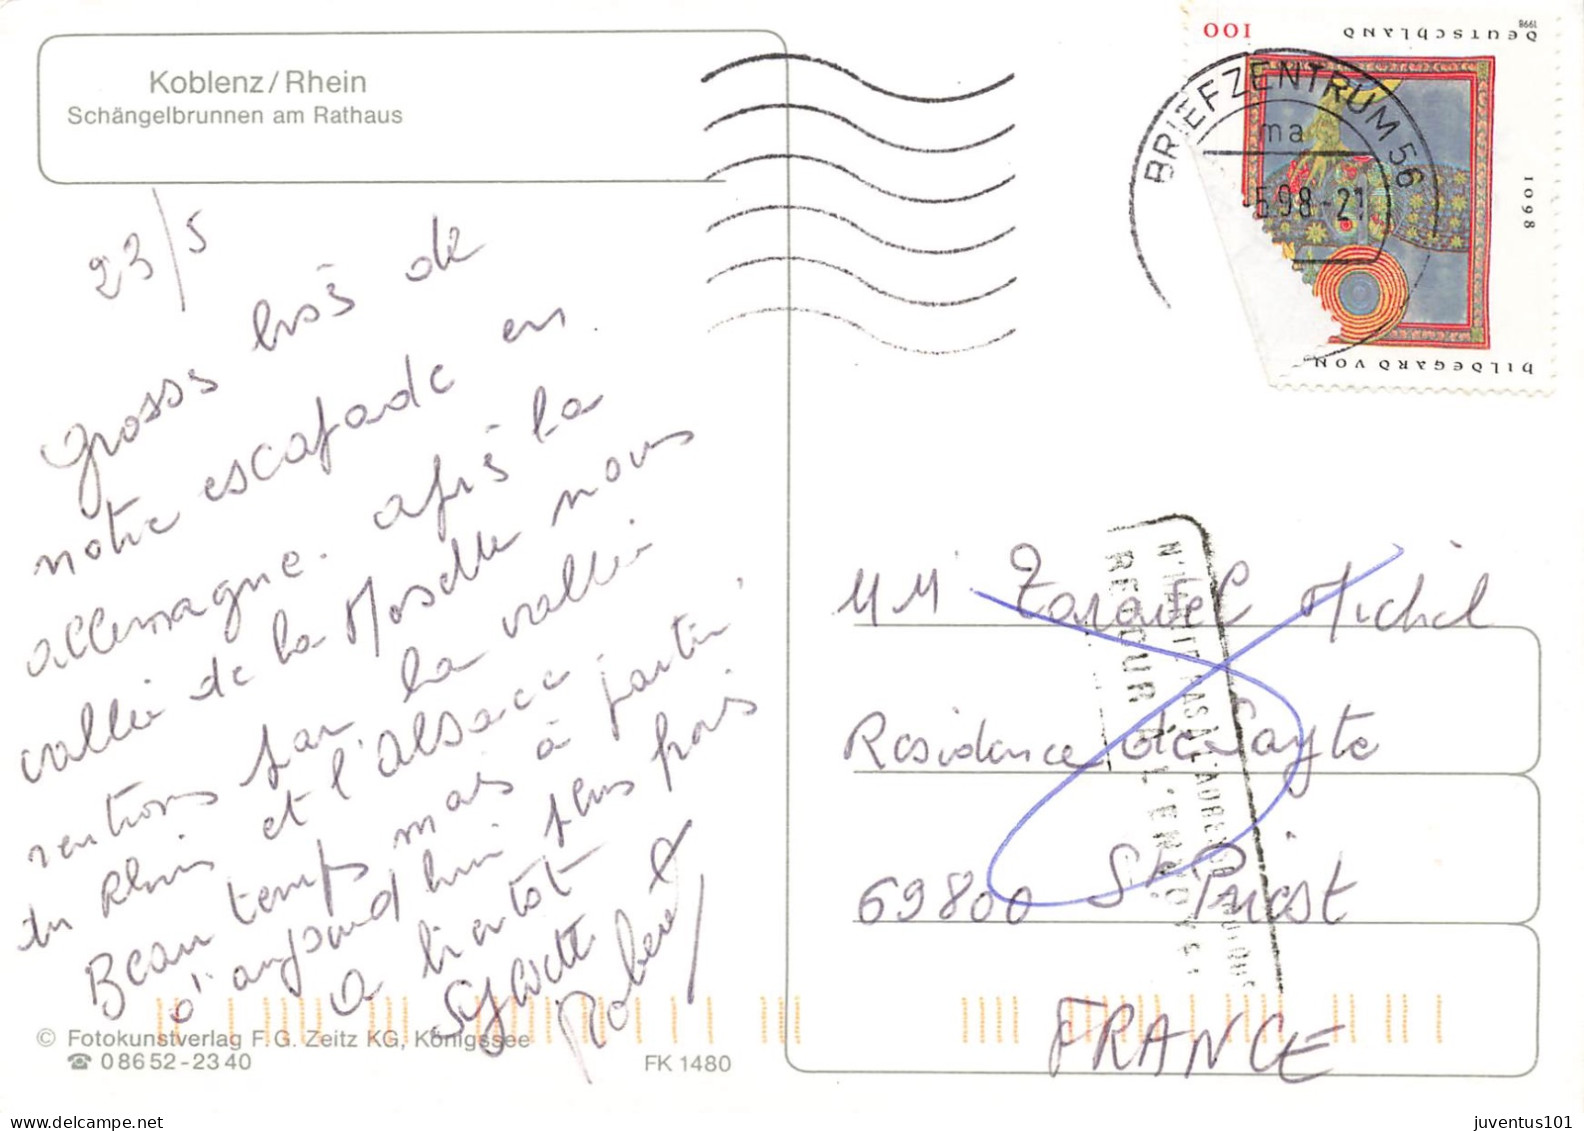 Koblenz/Rhein
Schängelbrunnen am Rathaus
23/5
Grosses bises de
notre escapade en
allemagne. après la
vallée de la Moselle nous
rentrons par la vallée
du Rhin et l'alsace
Beau temps mais à partir
d'aujourd'hui plus frais
a bientot
Sylvette
Robert
© Fotokunstverlag F.G. Zeitz KG, Königssee
☎ 08652-2340
FK 1480
1998
DEUTSCHLAND
100
1098
HILDEGARD VON
BRIEFZENTRUM 56
ma
5.98-21
N'HABITE PAS A L'ADRESSE INDIQUEE
RETOUR A L'ENVOYEUR
MM Taravel Michel
Residence de Sayte
69800 St Priest
FRANCE
juventus101